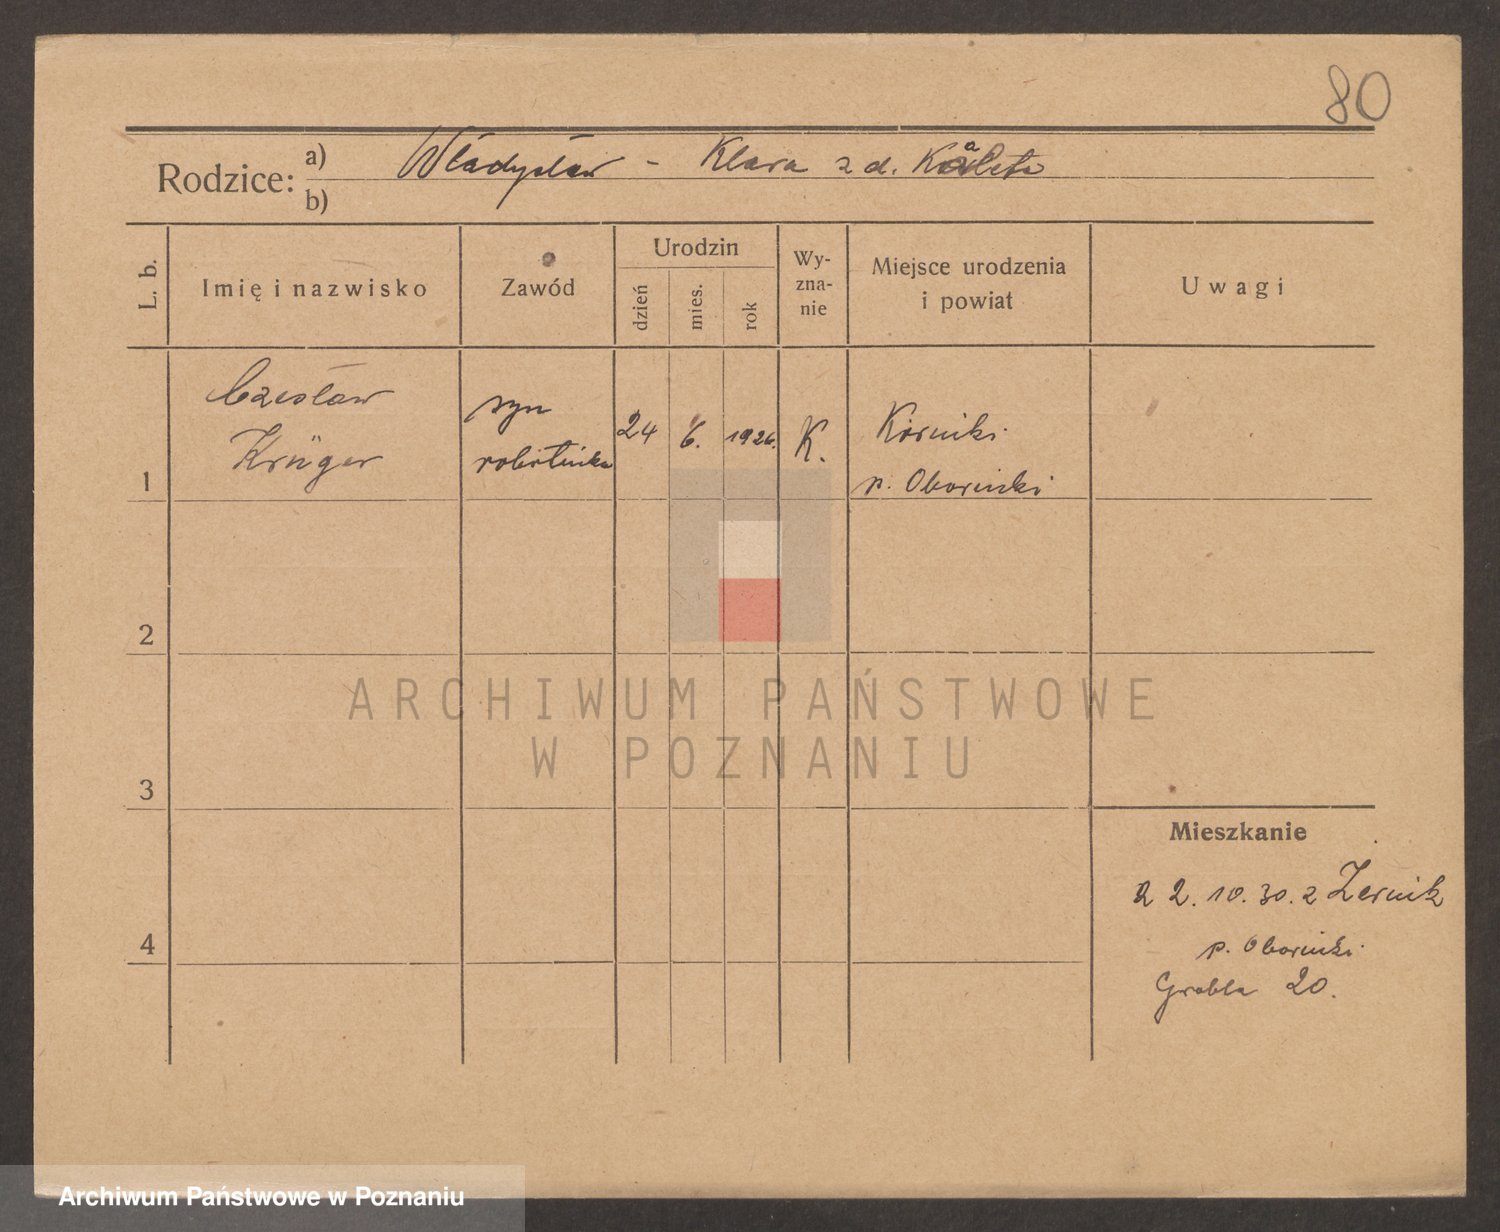 80
Rodzice: a) Władysław - Klara z d. Kaleta
b)
L. b.
Imię i nazwisko
Zawód
Urodzin
dzień
mies.
rok
Wy-
zna-
nie
Miejsce urodzenia
i powiat
Uwagi
Czesław
Krüger
syn
robotnika
24 6. 1926. K.
p. Obornicki
1
2
3
4
ARCHIWUM PAŃSTWOWE
W POZNANIU
Mieszkanie
2. 10. 30. z Zernik
p. Obornicki
Grobla 20.
Archiwum Państwowe w Poznaniu